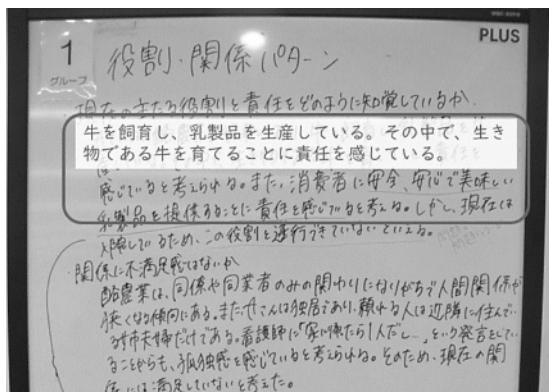 PLUS
1
グループ
役割・関係パターン
現在の主たる役割と責任をどのように知覚しているか
牛を飼育し、乳製品を生産している。その中で、生き
物である牛を育てることに責任を感じている。
感じていると考えられる。また、消費者に安全、安心で美味しい
乳製品を提供することに責任を感じていると考える。しかし、現在は
入院しているため、この役割を遂行できていないといえる。
・関係に不満足感はないか
酪農業は、同僚や同業者のみの関わりになりがちで人間関係が
狭くなる傾向にある。またAさんは独居であり、頼れる人は近隣に住んでい
る弟夫婦だけである。看護師に「家に帰ったら1人だし…」という発言をしてい
ることからも、孤独感を感じていると考えられる。そのため、現在の関
係には満足していないと考えた。